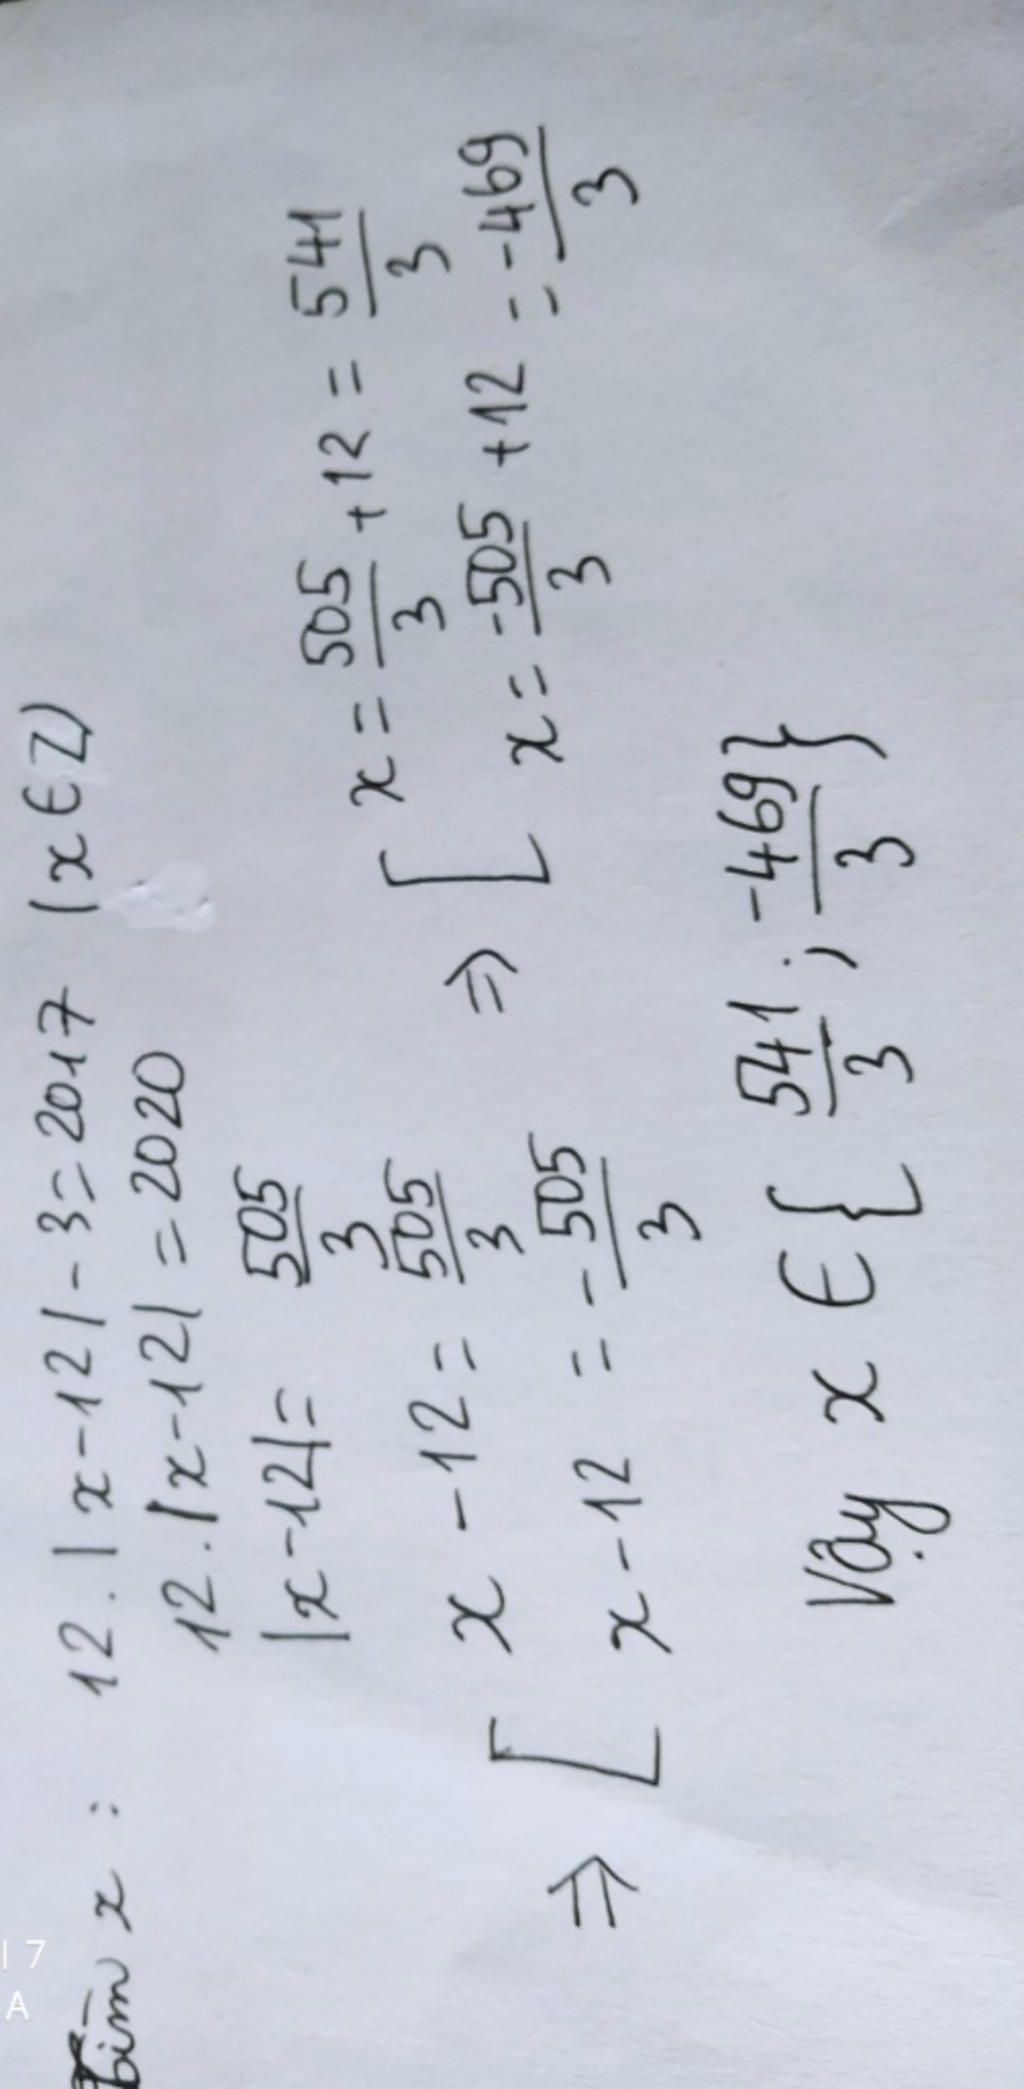 Tìm x : 12 . | x - 12 | - 3 = 2017 ( x ∈ Z )
12 . | x - 12 | = 2020
| x - 12 | = 505/3
⇒ [ x - 12 = 505/3 ⇒ [ x = 505/3 + 12 = 541/3
x - 12 = - 505/3 x = -505/3 + 12 = -469/3
Vậy x ∈ { 541/3 ; -469/3 }
17
A